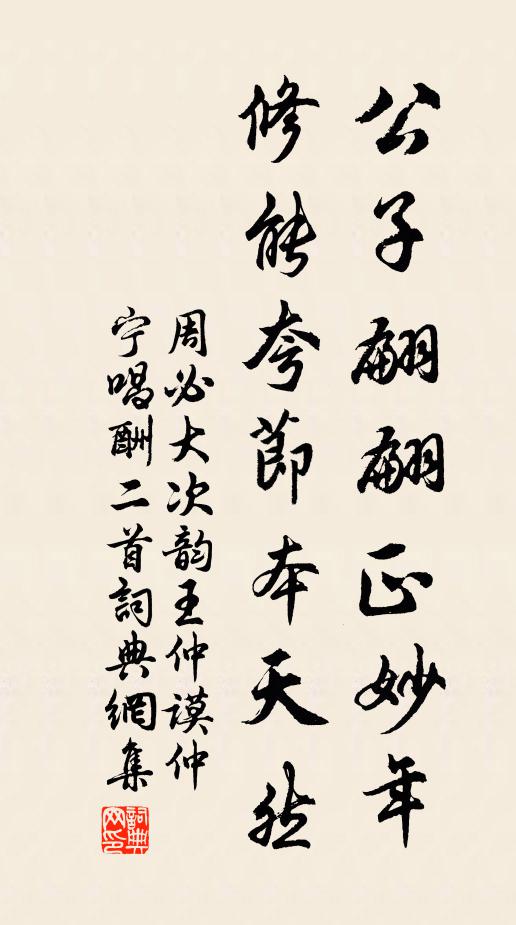 公子翩翩正妙年
修能夸節本天然
周必大次韵王仲謨仲
宁唱酬二首詞典網集
詞典
网印